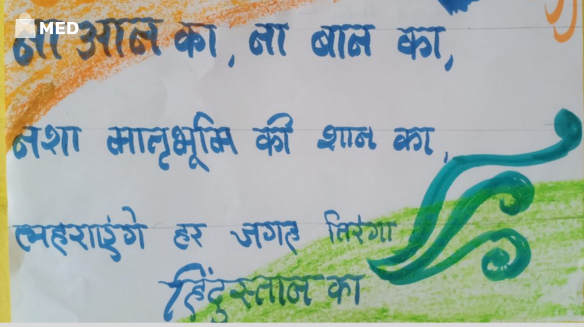 MED
ना आन का, ना बान का,
नशा मातृभूमि की शान का,
लहराएंगे हर जगह तिरंगा
हिंदुस्तान का